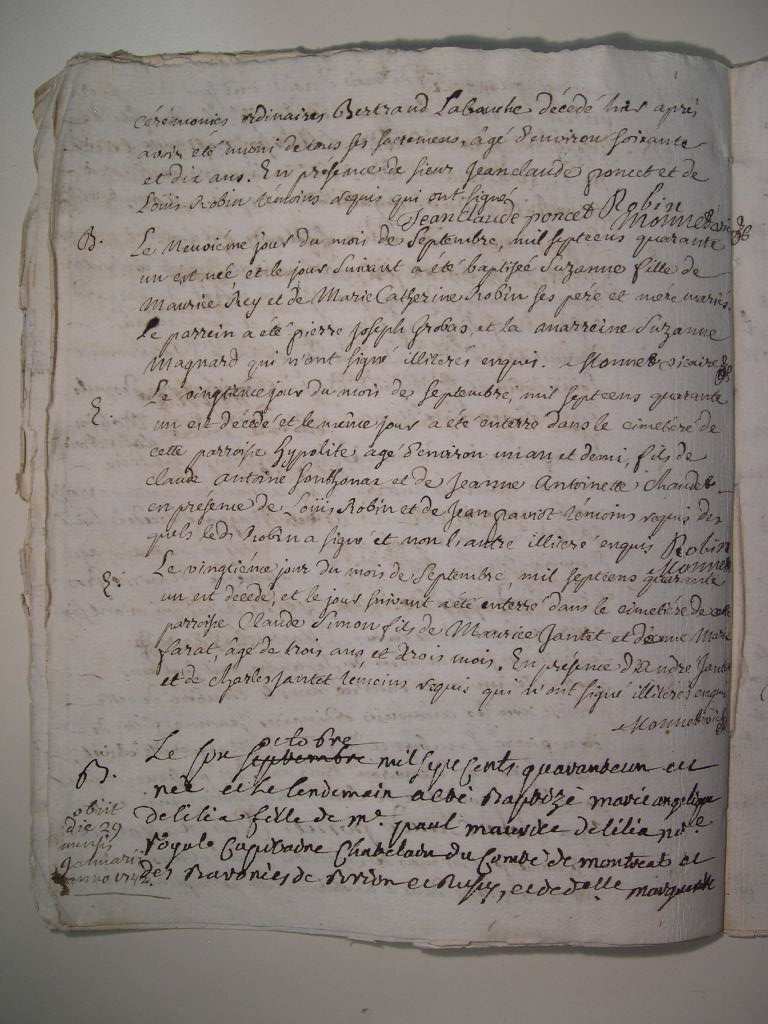 cérémonies ordinaires Bertrand Labauche décédé hier après
avoir été muni de tous ses sacremens, âgé d'environ soixante
et dix ans. En présence de sieur Jeanclaude poncet et de
Loüis Robin témoins requis qui ont signé
Jeanclaude poncet Robin
Monnet vic
B. Le neuvième jour du mois de septembre, mil septcens quarante
un est née et le jour suivant a été baptiseé Suzanne fille de
Maurice Rey et de Marie Catherine Robin ses pere et mere mariés.
Le parrein a été pierre Joseph Grobas, et la marreine Suzanne
Magnard qui n'ont signé illiterés enquis. Monnet vicaire
E. Le vingtiéme jour du mois de septembre, mil septcens quarante
un est décédé et le même jour a été enterré dans le cimetiére de
cette parroisse Hypolite agé d'environ un an et demi, fils de
claude antoine Sonthonax et de Jeanne Antoinette Chaudet
en présence de Loüis Robin et de Jean témoins requis des
quels led. Robin a signé et non l'autre illiteré enquis Robin
Monnet
E. Le vingtiéme jour du mois de septembre, mil septcens quarante
un est décédé, et le jour suivant a été enterré dans le cimetiére de cette
parroisse Claude Simon fils de Maurice Jantet et Marie
Farat, âgé de trois ans et trois mois. En présence d'Andre Jantet
et de Charles Jantet témoins requis qui n'ont signé illiterés enquis
Monnet vic
octobre
B. Le septembre mil sept cents quarante un est
née et le lendemain a été Baptizé marie angelique
delilia fille de mr. paul maurice delilia nre
Royale Capitaine Chatelain du Comté de montreal et
des Baronies de et, et de delle marguerite
obiit
die 29
mensis
januarii
anno 1742.